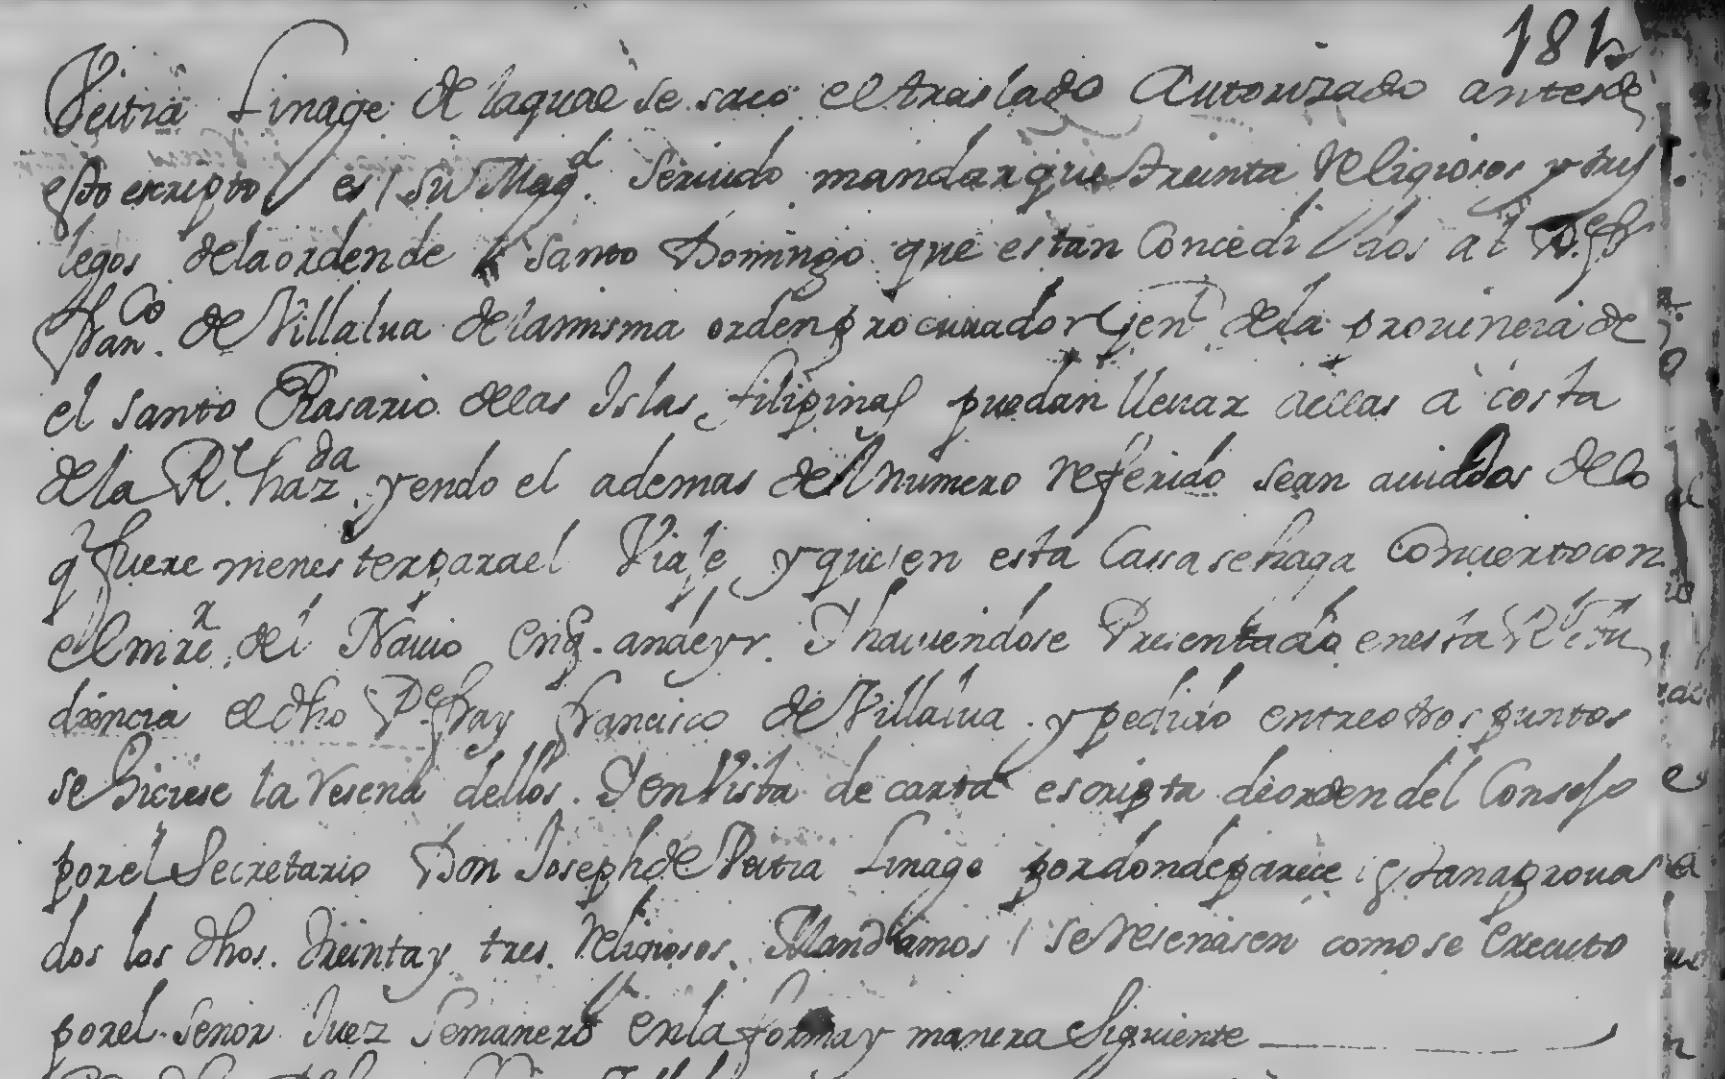 181
Veitia Linage de la qual se saco el traslado Autorizado antes de
esto escripto es su Magd. seruido mandar que treinta religiosos y tres
legos de la orden de Santo Domingo que estan Concedidos al Pe. fr
Franco. de Villalua de la misma orden procurador jenl de la prouincia de
el santo Rosario de las Islas filipinas puedan lleuar a ellas a costa
de la Rl. hazda. yendo el ademas del numero referido sean auiados de lo
q fuere menester para el Viaje y que en esta Cassa se haga Concierto con
el mre. del Nauio en q. an de yr. Y hauiendose Presentado en esta Rl Au
diencia el dho Pe. fray francisco de Villalua. y pedido entre otros puntos
se hiciese la resena dellos. Y en Vista de carta escripta de orden del Consejo
por el Secretario Don Joseph de Veitia Linage por donde parece estan aproua
dos los dhos. treinta y tres religiosos. Mandamos se resenasen como se executo
por el Senor Juez Semanero en la forma y manera Siguiente